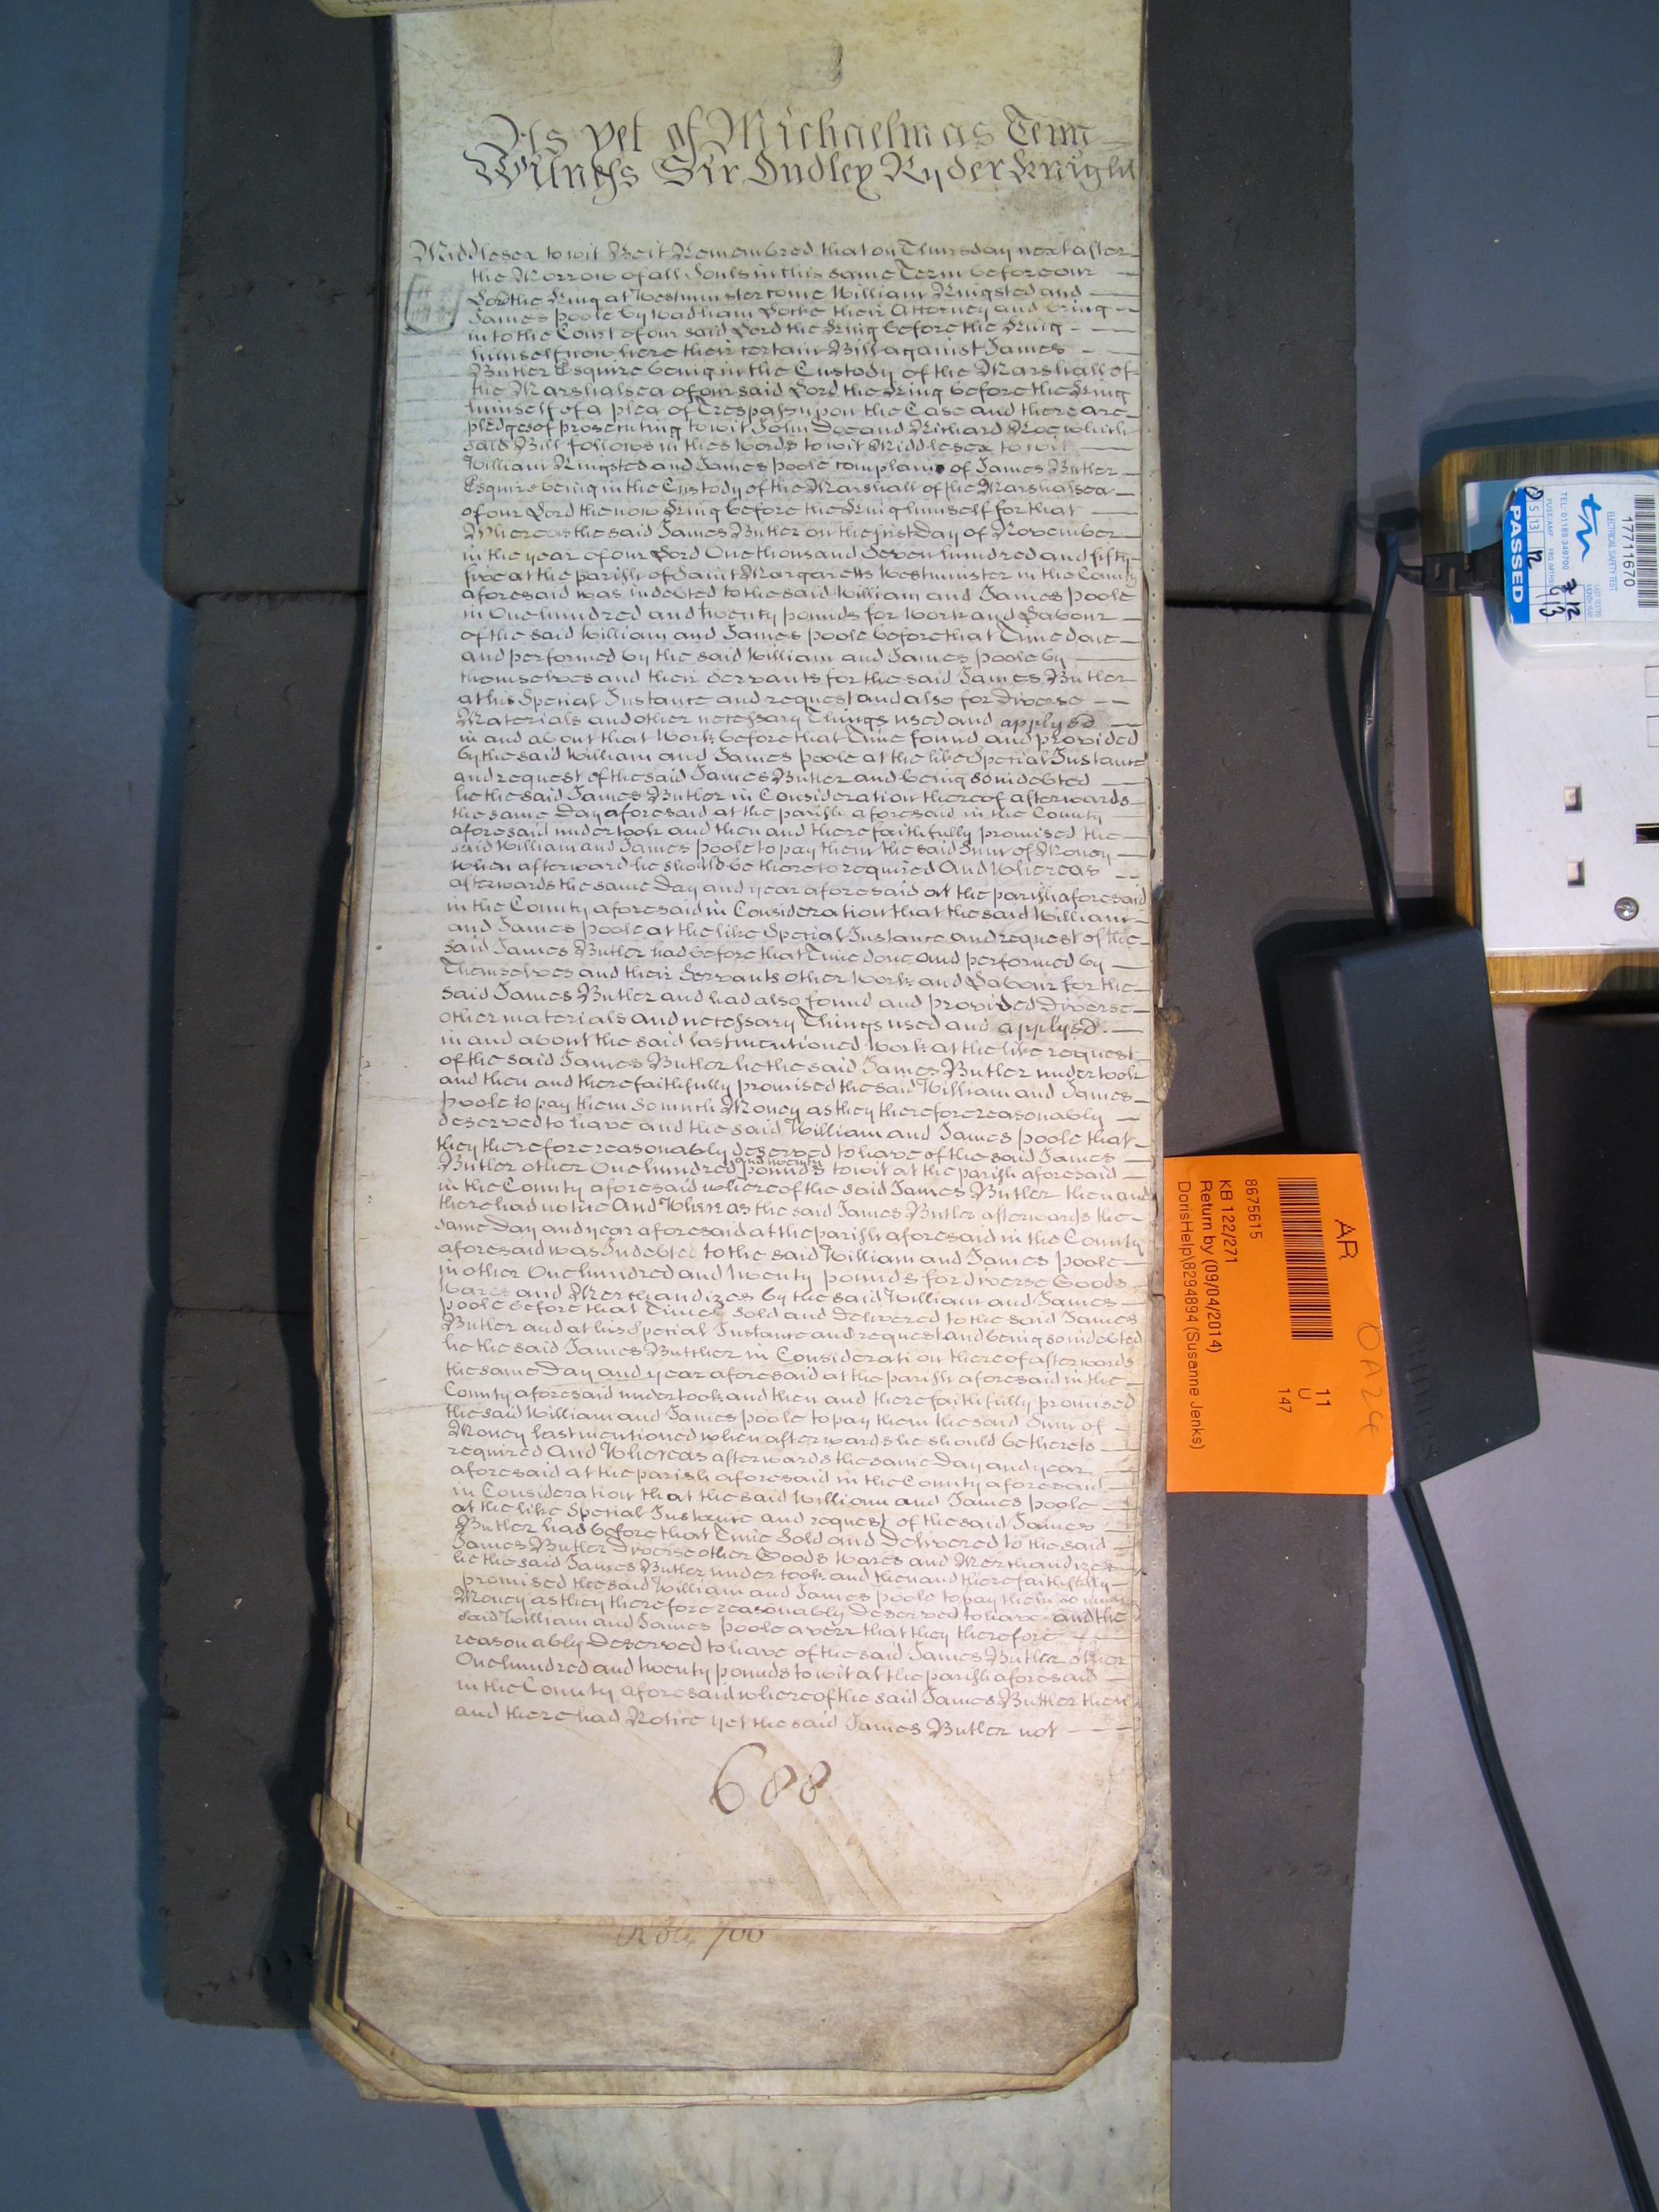 As yet of Michaelmas Term
Witness Sir Dudley Ryder Knight
Middlesex to wit Be it Remembred that on Thursday next after
the Morrow of all Souls in this same Term before our
Lord the King at Westminster come William Kingsted and
James Poole by Wadham Locke their Attorney and bring
into the Court of our said Lord the King before the King
himself now here their certain Bill against James
Butler Esquire being in the Custody of the Marshall of
the Marshalsea of our said Lord the King before the King
himself of a plea of Trespass upon the Case and there are
pledges of prosecuting to wit John Doe and Richard Roe which
said Bill follows in these Words to wit Middlesex to wit
William Kingsted and James Poole complain of James Butler
Esquire being in the Custody of the Marshall of the Marshalsea
of our Lord the now King before the King himself for that
Whereas the said James Butler on the first Day of November
in the year of our Lord One thousand Seven hundred and fifty
five at the parish of Saint Margaretts Westminster in the County
aforesaid was indebted to the said William and James Poole
in One hundred and twenty pounds for Work and Labour
of the said William and James Poole before that Time done
and performed by the said William and James Poole by
themselves and their Servants for the said James Butler
at his Special Instance and request and also for Diverse
Materials and other necessary Things used and applyed
in and about that Work before that Time found and provided
by the said William and James Poole at the like Special Instance
and request of the said James Butler and being so indebted
he the said James Butler in Consideration thereof afterwards
the same Day aforesaid at the parish aforesaid in the County
aforesaid undertook and then and there faithfully promised the
said William and James Poole to pay them the said Sum of Money
when afterward he should be thereto required And Whereas
afterwards the same Day and year aforesaid at the parish aforesaid
in the County aforesaid in Consideration that the said William
and James Poole at the like Special Instance and request of the
said James Butler had before that Time done and performed by
Themselves and their Servants other Work and Labour for the
said James Butler and had also found and provided Diverse
other materials and necessary Things used and applyed
in and about the said last mentioned Work at the like request
of the said James Butler he the said James Butler undertook
and then and there faithfully promised the said William and James
Poole to pay them so much Money as they therefore reasonably
deserved to have and the said William and James Poole that
they therefore reasonably deserved to have of the said James
Butler other One hundred and twenty pounds to wit at the parish aforesaid
in the County aforesaid whereof the said James Butler then and
there had notice And Whereas the said James Butler afterwards the
same Day and year aforesaid at the parish aforesaid in the County
aforesaid was Indebted to the said William and James Poole
in other One hundred and twenty pounds for diverse Goods
Wares and Merchandizes by the said William and James
Poole before that Time Sold and Delivered to the said James
Butler and at his Special Instance and request and being so indebted
he the said James Buttler in Consideration thereof afterwards
the same Day and year aforesaid at the parish aforesaid in the
County aforesaid undertook and then and there faithfully promised
the said William and James Poole to pay them the said Sum of
Money last mentioned when afterwards he should be thereto
required And Whereas afterwards the same Day and year
aforesaid at the parish aforesaid in the County aforesaid
in Consideration that the said William and James Poole
at the like Special Instance and request of the said James
Butler had before that Time Sold and Delivered to the said
James Butler Diverse other Goods Wares and Merchandizes
he the said James Butler undertook and then and there faithfully
promised the said William and James Poole to pay them so much
Money as they therefore reasonably Deserved to have and the
said William and James Poole averr that they therefore
reasonably Deserved to have of the said James Butler other
One hundred and twenty pounds to wit at the parish aforesaid
in the County aforesaid whereof the said James Buttler then
and there had Notice Yet the said James Butler not
688
Roll 700
AR
11
U
147
8675615
KB 122/271
Return by (09/04/2014)
DorisHelp\8294894 (Susanne Jenks)
1711670
ELECTRICAL SAFETY TEST
TEL: 01189 349700
PASSED